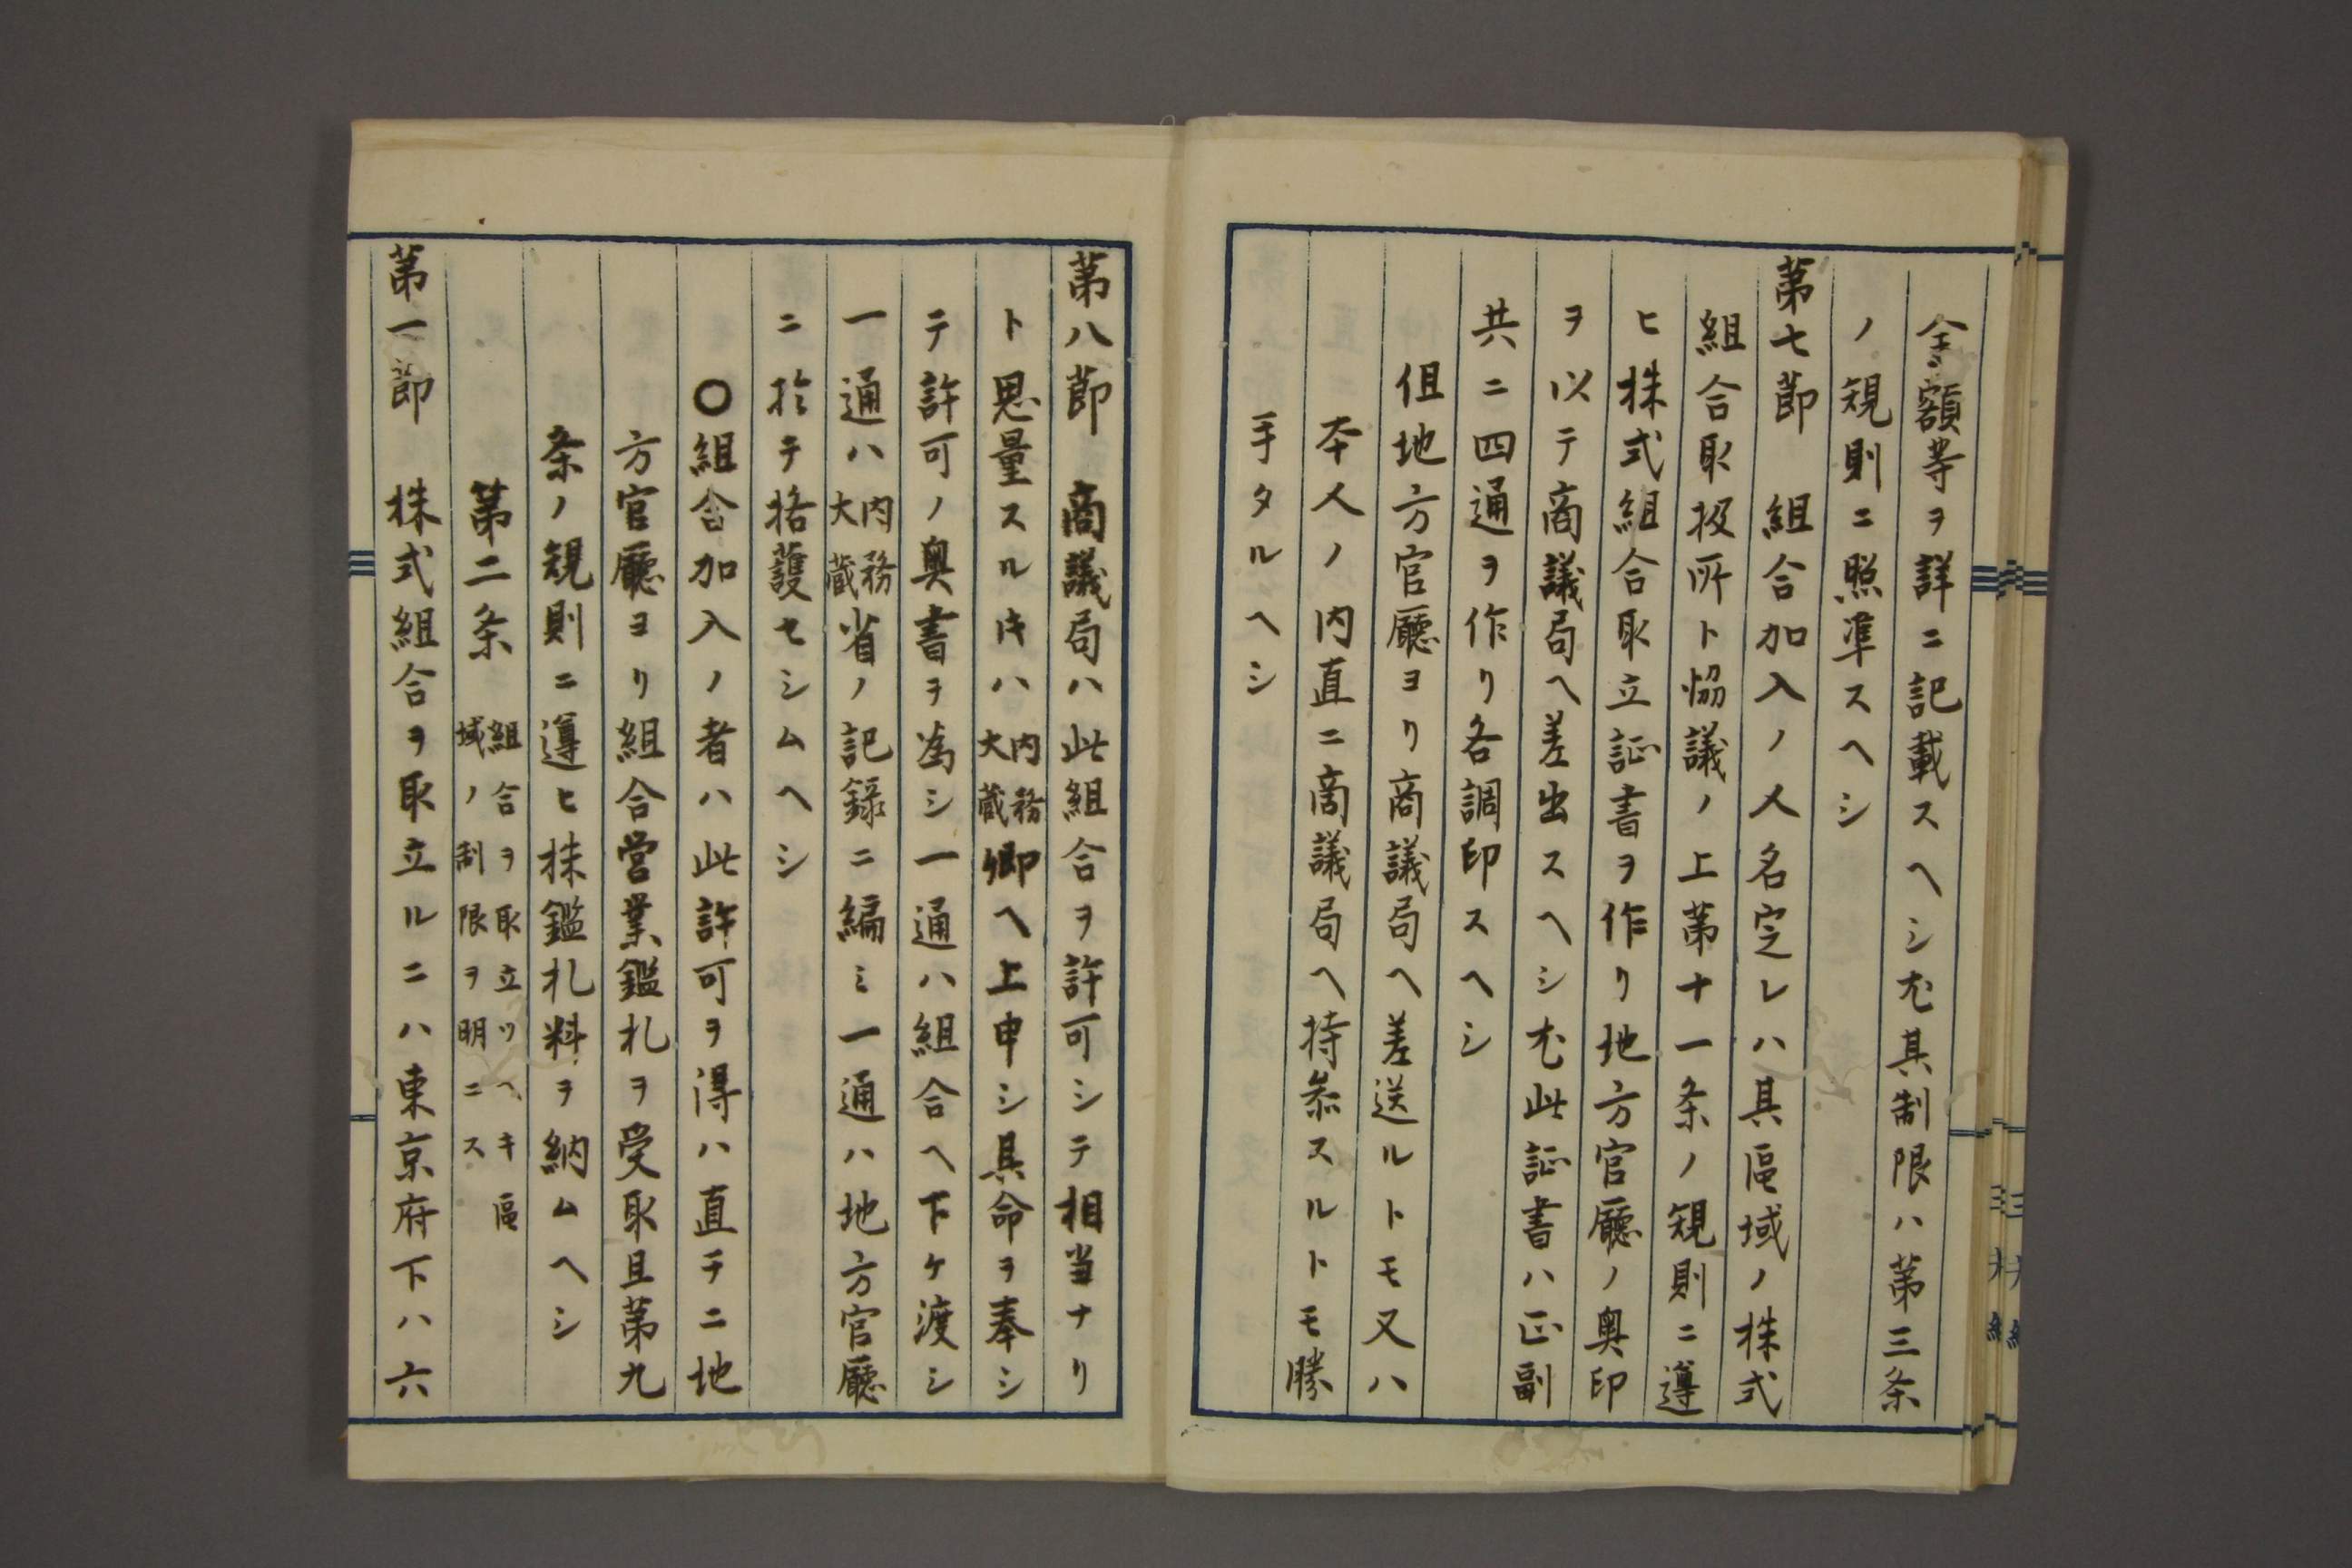 金額等ヲ詳ニ記載スヘシ尤其制限ハ第三条
ノ規則ニ照準スヘシ
第七節　組合加入ノ人名定レハ其區域ノ株式
組合取扱所ト協議ノ上第十一条ノ規則ニ遵
ヒ株式組合取立証書ヲ作リ地方官廳ノ奥印
ヲ以テ商議局ヘ差出スヘシ尤此証書ハ正副
共ニ四通ヲ作リ各調印スヘシ
但地方官廳ヨリ商議局ヘ差送ルトモ又ハ
本人ノ内直ニ商議局ヘ持参スルトモ勝
手タルヘシ
第八節　商議局ハ此組合ヲ許可シテ相当ナリ
ト思量スルㇳキハ内務大蔵卿ヘ上申シ具命ヲ奉シ
テ許可ノ奥書ヲ為シ一通ハ組合ヘ下ケ渡シ
一通ハ内務大蔵省ノ記録ニ編ミ一通ハ地方官廳
ニ於テ格護セシムヘシ
〇組合加入ノ者ハ此許可ヲ得ハ直チニ地
方官廳ヨリ組合営業鑑札ヲ受取且第九
条ノ規則ニ遵ヒ株鑑札料ヲ納ムヘシ
第二条　組合ヲ取立ツヘキ區
域ノ制限ヲ明ニス
第一節　株式組合ヲ取立ルニハ東京府下ハ六